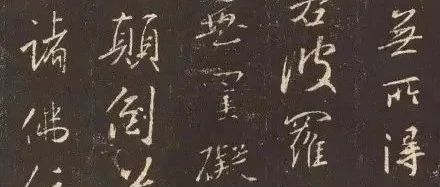 無所得
若波羅
無罣礙
顛倒夢
諸佛依